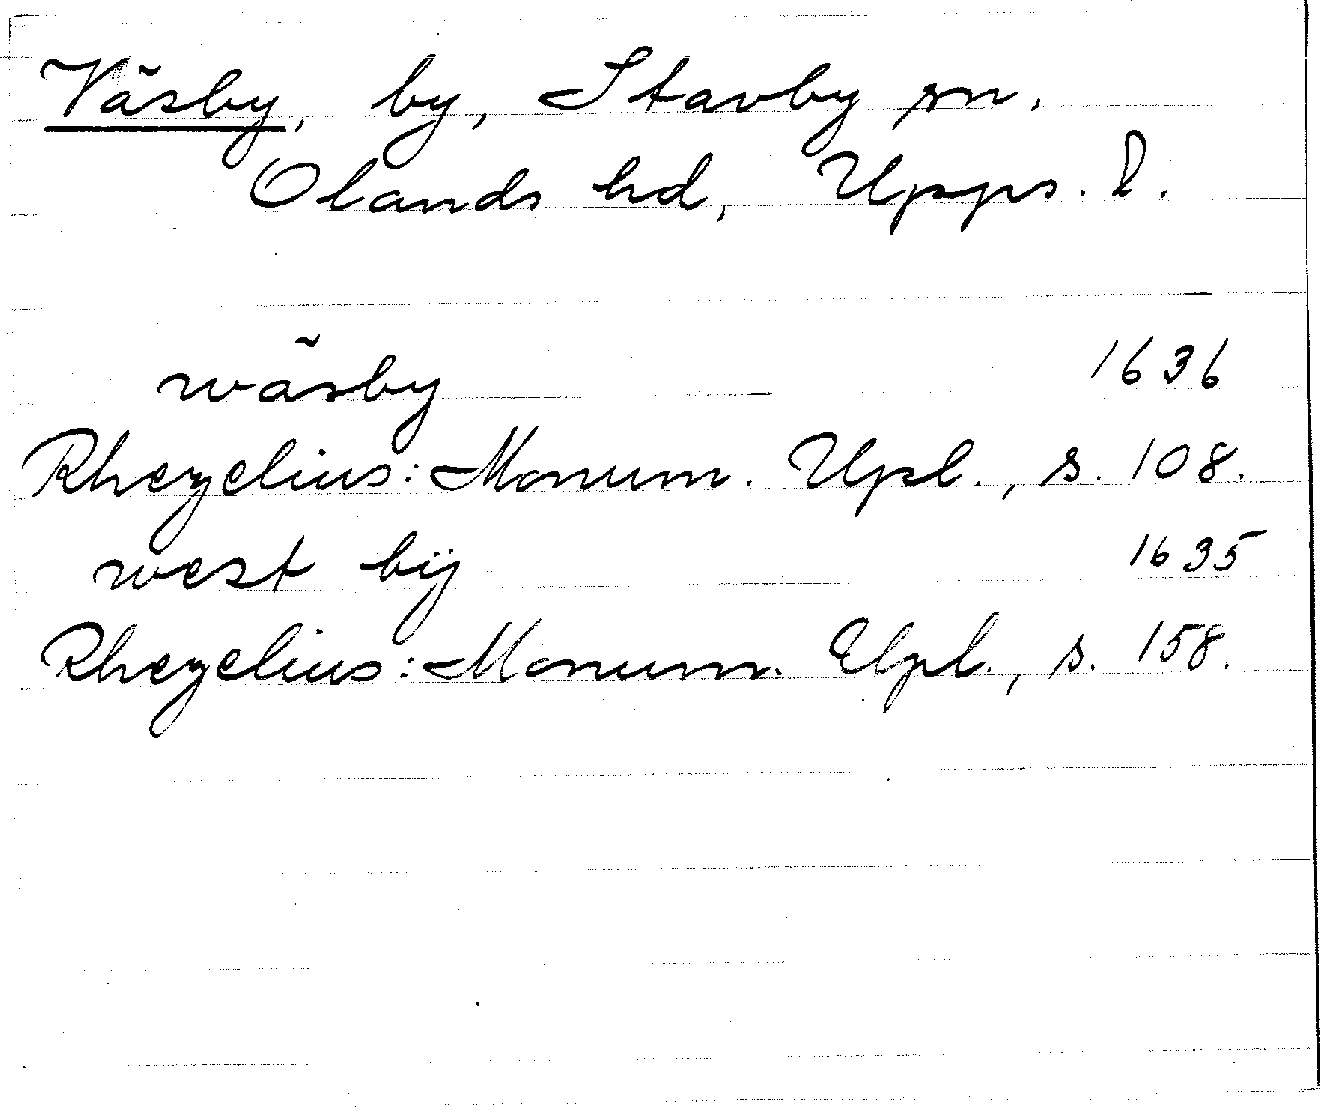 Väsby, by, Stavby sn.
Olands hd, Upps. l.
wäsby 1636
Rhezelius: Monum. Upl., s. 108.
west bÿ 1635
Rhezelius: Monum. Upl., s. 158.